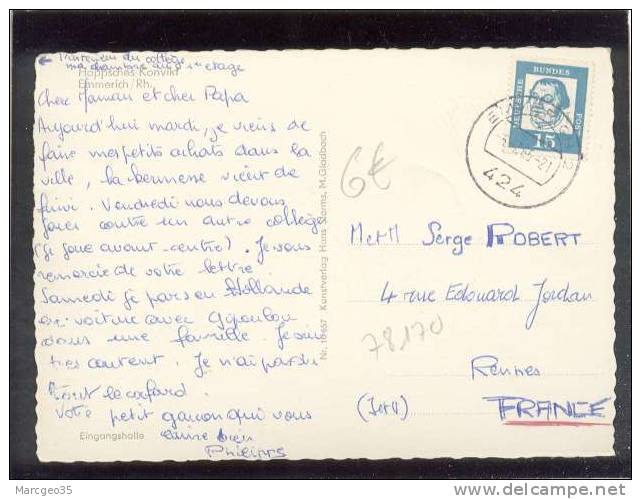 ← Intérieur du collège
ma chambre au 1er étage
Hoppsches Konvikt
Emmerich/Rh.
Cher Maman et cher Papa
Aujourd'hui mardi, je viens de
faire mes petits achats dans la
ville, la kermesse vient de
finir. Vendredi nous devons
jouer contre un autre collège
(je joue avant-centre). Je vous
remercie de votre lettre.
Samedi je pars en Hollande
en voiture avec
dans une famille. Je suis
très content. Je n'ai pas du
tout le cafard.
Votre petit garçon qui vous
aime bien
Philippe
Eingangshalle
Nr. 10 657 Kunstverlag Hans Storms, M.Gladbach
6€
78170
DEUTSCHE BUNDES POST
15
424
Mr et M Serge ROBERT
4 rue Edouard Jordan
Rennes
(I et V)
FRANCE
Marcgeo35
www.delcampe.net